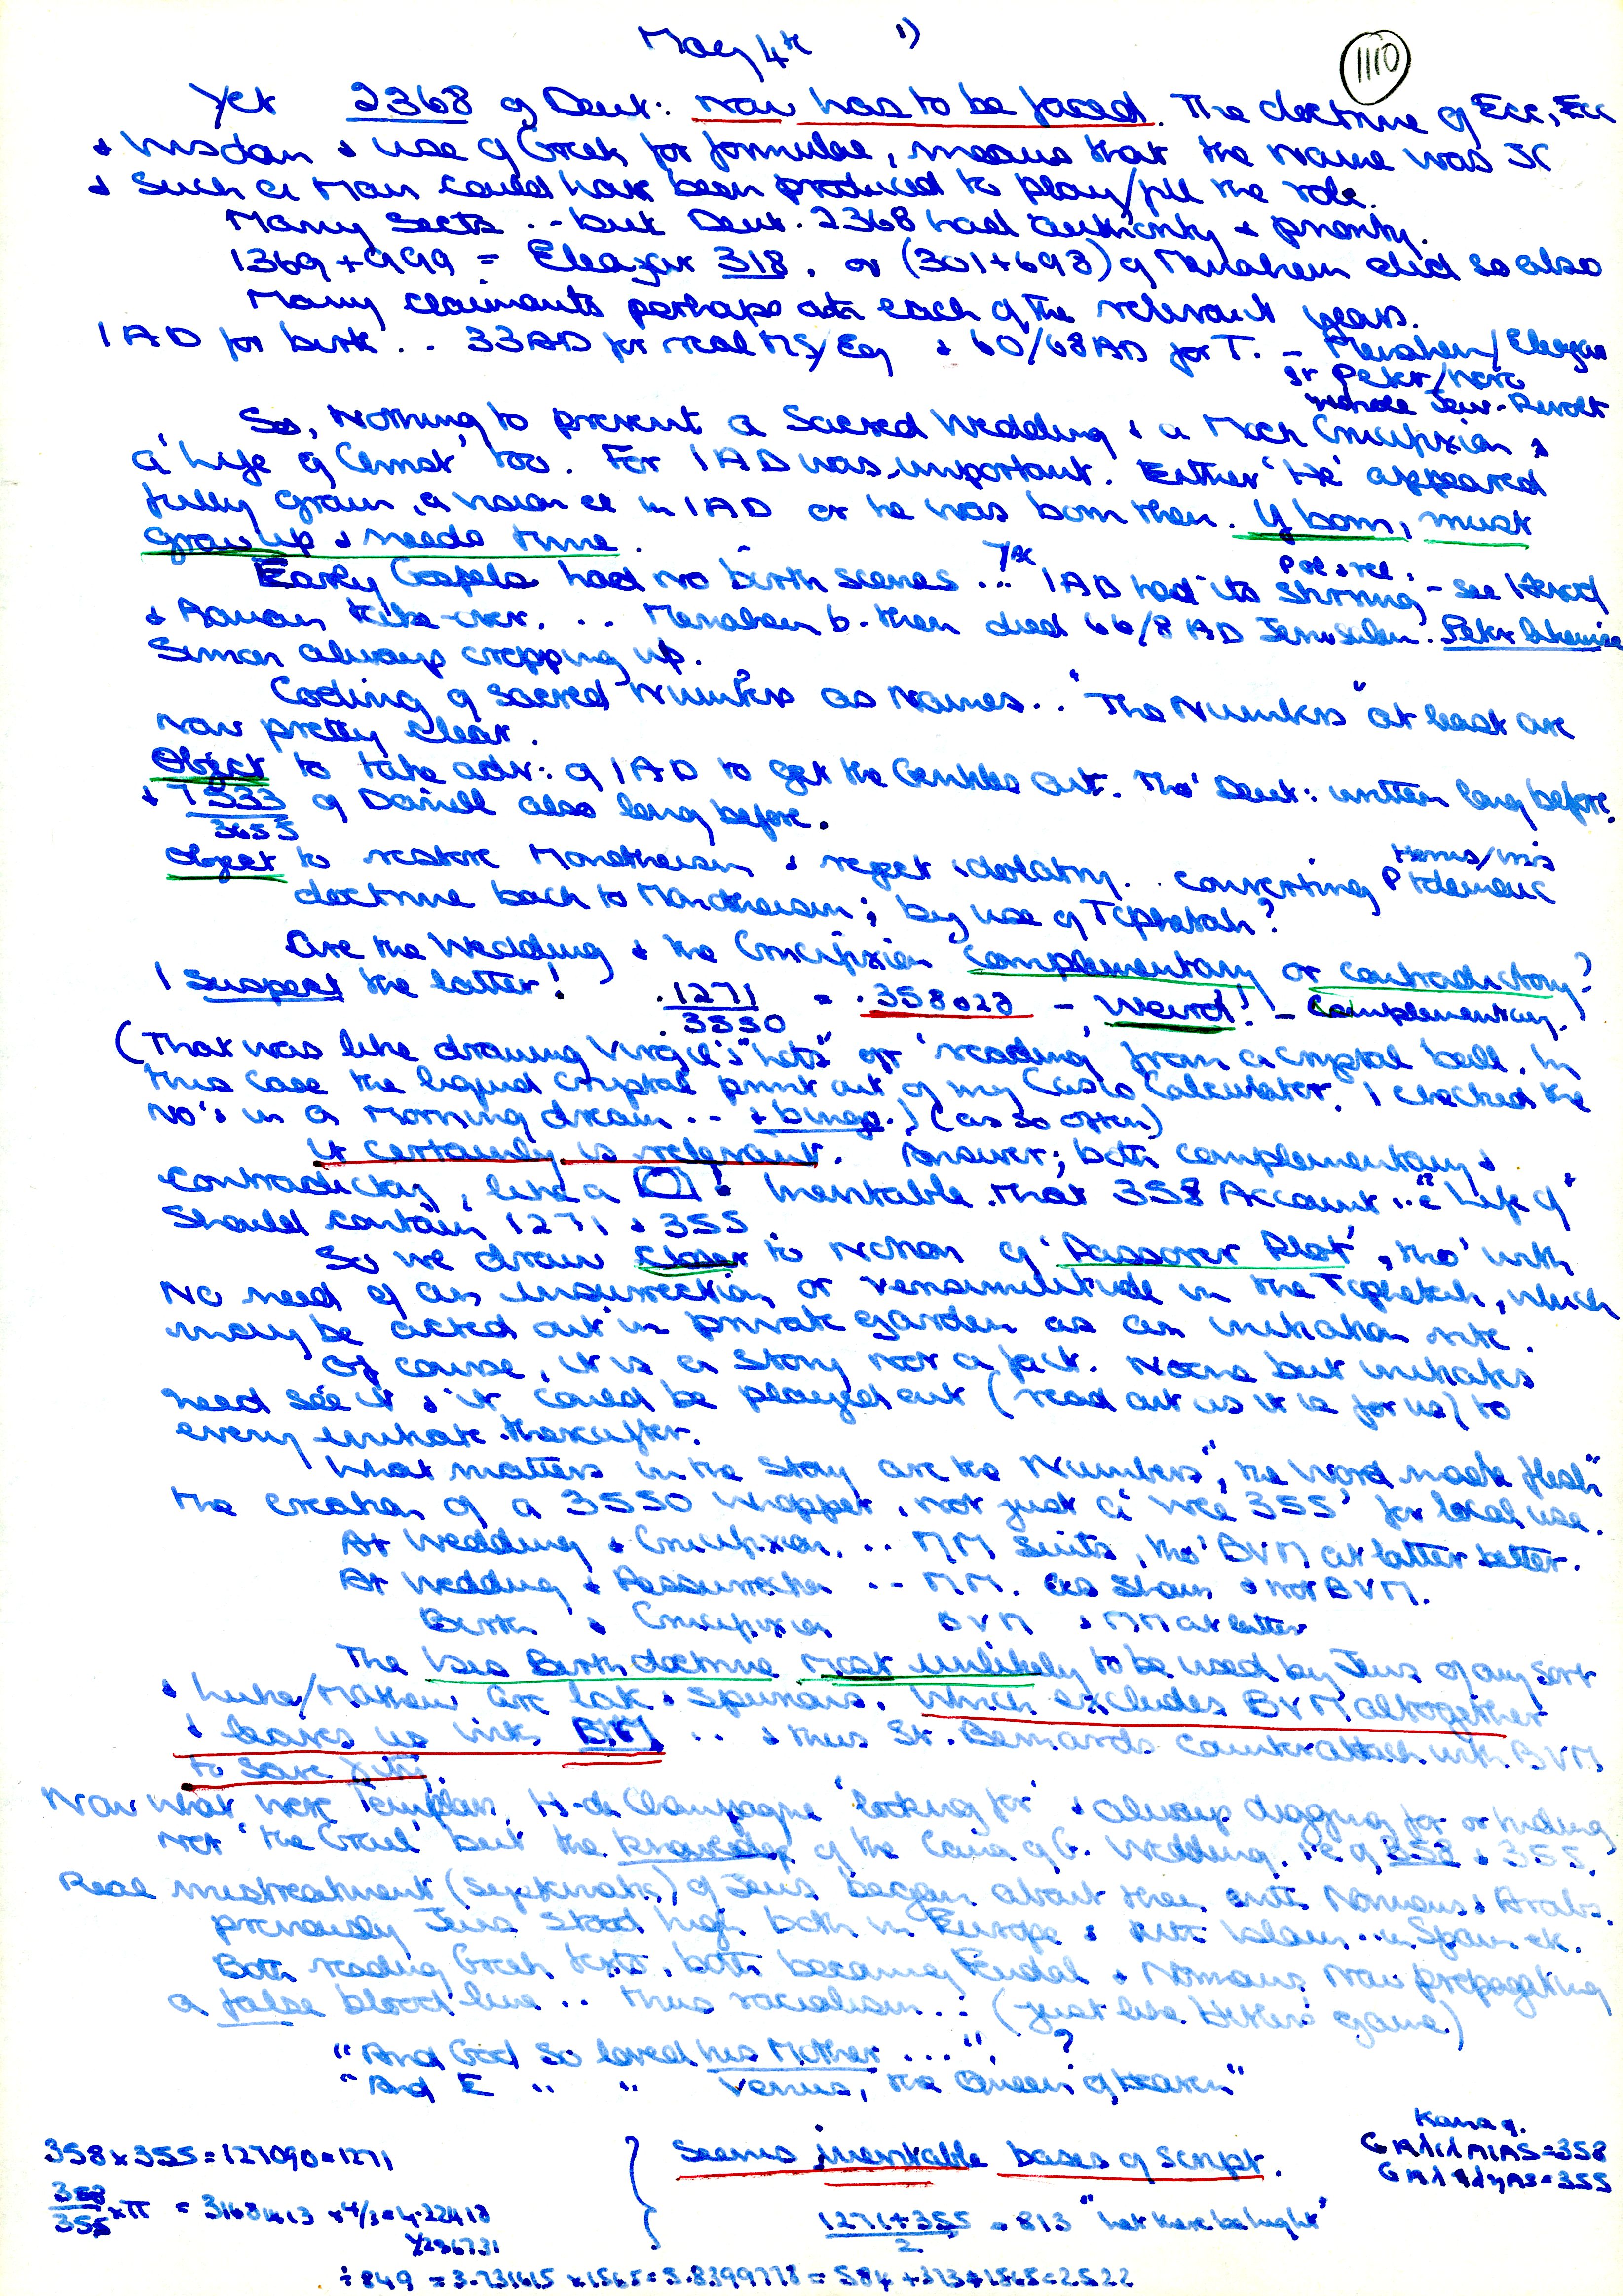 May 4th 1)
1110
Yet 2368 of Deut: now has to be faced. The doctrine of Ecc, Ecc
& Wisdom & use of Greek for formulae, means that the Name was JC
& Such a Man could have been produced to play/fill the role.
Many Sects .. but Deut. 2368 had authority & priority.
1369+999 = Eleazar 318. or (301+693) of Menahem did so also
Many claimants perhaps at each of the relevant years.
1 AD for birth .. 33AD for real MS/Eq & 60/68AD for T. - Menahem/Eleazar
or Peter/Nero
whole Jew. Revolt
So, Nothing to prevent a Sacred Wedding & a Mock Crucifixion &
a 'Life of Christ' too. For 1AD was important. Either 'He' appeared
fully grown, in 1AD or he was born then. If born, must
grow up & needs time.
Early Gospels had no birth scenes ... The 1AD had its Pol & rel. Stirring - see Herod
& Roman take-over. .. Menahem b. then died 66/8 AD Jerusalem. Peter likewise
Simon always cropping up.
Coding of Sacred Numbers as Names.. "The Numbers" at least are
now pretty clear.
Object to take adv: of 1AD to get the Gentiles out. Tho' Deut: written long before.
& 7333 of Daniel also long before.
3655
Object to restore Monotheism & reject idolatry. Converting Ptolemaic
doctrine back to Monotheism; by use of Tiphetah?
Are the Wedding & the Crucifixion complementary or contradictory?
I suspect the latter! .1271 = .358028 - Weird! - Complementary.
3550
(That was like drawing Virgil's "lots" or 'reading' from a crystal ball. In
this case the liquid crystal print out of my Casio Calculator. I checked the
No's in a Morning dream .. & bingo.) (as so often)
It certainly is relevant. Answer; both complementary &
contradictory, like a ! Inevitable that 358 Account .. "Life of"
should contain 1271 & 355.
So we draw closer to notion of 'Passover Plot', tho' with
No need of an insurrection or verisimilitude in the Tiphetah, which
may be acted out in private garden as an initiation rite.
Of course, it is a Story not a fact. None but initiates
need see it & it could be played out (read out as it is for us) to
every initiate thereafter.
What matters in the Story are the Numbers, "the Word made flesh"
the creation of a 3550 whopper, not just a 'wee 355' for local use.
At Wedding & Crucifixion. .. MM suits, tho' BVM at latter better.
At Wedding & Resurrection .. MM. as shown & not BVM.
Birth & Crucifixion BVM & MM at latter
The Isis Birth doctrine most unlikely to be used by Jews of any sort
& Luke/Mathew are late & spurious. Which excludes BVM altogether
& leaves us with .. & thus St. Bernards counterattack with BVM
to save Xity.
Now what were Templars, H-de Champagne 'looking for' & always digging for or hiding
Not 'the Grail' but the knowledge of the Cana of G. Wedding, i.e. of 358 & 355.
Real mistreatment (systematic) of Jews began about then with Normans & Arabs.
previously Jews stood high both in Europe & with Islam .. in Spain etc.
Both reading Greek texts, both becoming Feudal & Normans now propagating
a false blood line .. thus racialism.. (just like Hitler's game)
"And God so loved his Mother ..." ?
"And E " " Venus, the Queen of Heaven"
358x355=127090=1271
358 x π = 3.1681413 x4/3=4.22418
355
Seems inevitable bases of Script.
1271+355 = 813 "Let there be light"
2
Kana of.
=358
=355
÷ 849 = 3.731615 x1565=5.8399778 = 584 +373+1565=2522